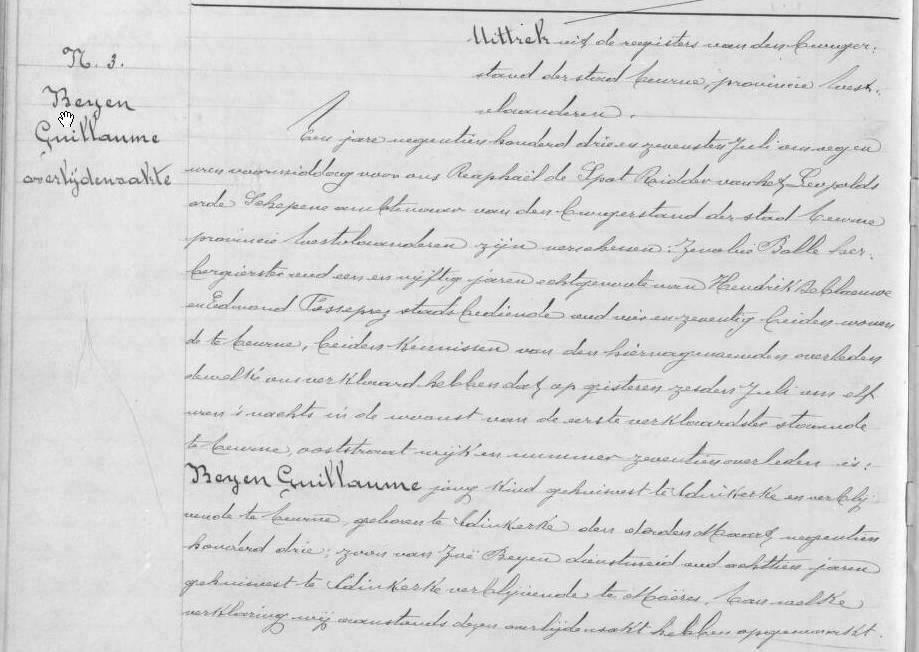 N. 3.
Beyen
Guillaume
overlijdensakte
Uittrek uit de registers van den burger-
stand der stad Veurne, provincie West-
vlaanderen.
Ten jare negentien honderd drie en zevensten Juli om negen
uren voormiddag voor ons Raphaël de Spot Ridder van het Leopolds
orde Schepene ambtenaar van den burgerstand der stad Veurne
provincie Westvlaanderen zijn verschenen: Balle her-
bergierster oud een en vijftig jaren echtgenoote van Hendrik De Claeuwe
en Edmond stadsbediende oud vier en zeventig beiden wonen
de te Veurne, beiden kennissen van den hiernagenoemden overleden
dewelke ons verklaard hebben dat op gisteren zesden Juli om elf
uren 's nachts in de woonst van de eerste verklaardster staande
te Veurne, ooststraat wijk en nummer zeventien overleden is:
Beyen Guillaume jong kind gehuisvest te Adinkerke en verblij
vende te Veurne, geboren te Adinkerke den derden Maart negentien
honderd drie; zoon van Zoë Beyen dienstmeid oud achttien jaren
gehuisvest te Adinkerke verblijvende te Moëres. Van welke
verklaring wij aanstonds dezen overlijdensakt hebben opgemaakt.